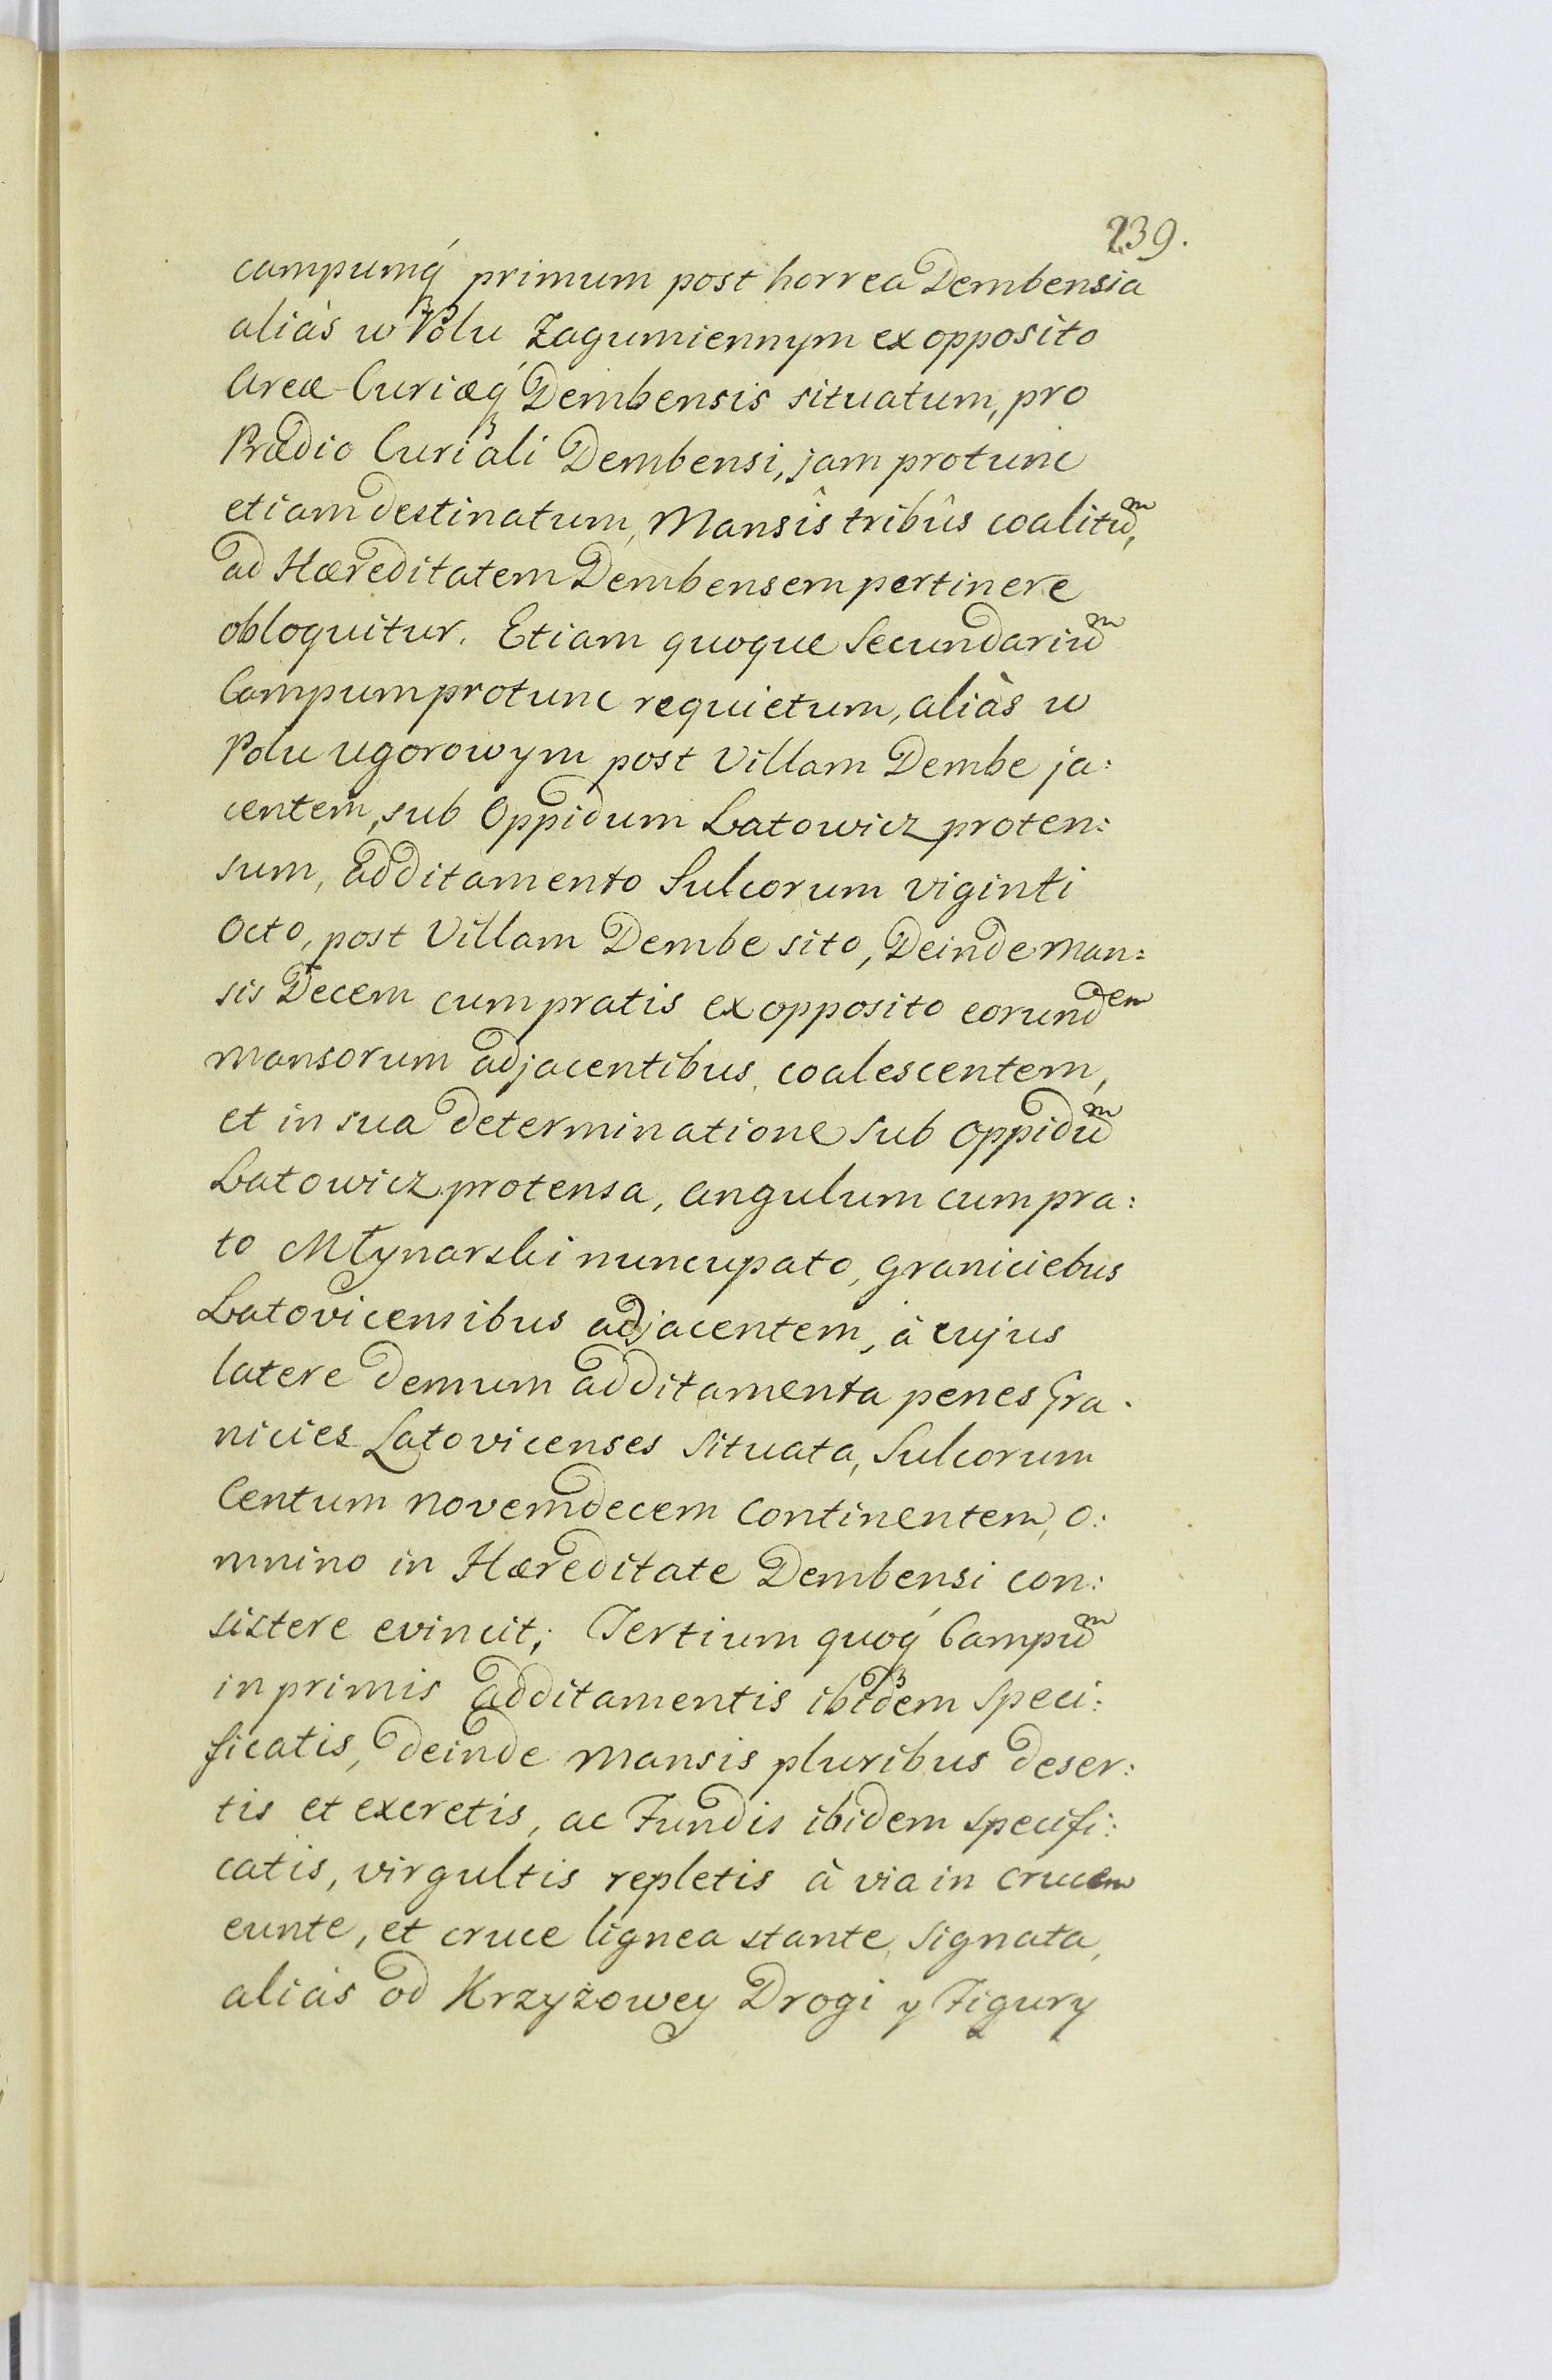 239.
campumq́ primum post horrea Dembensia
aliàs w Polu Zagumiennym ex opposito
Areæ Curiæq́ Dembensis situatum, pro
Prædio Curiali Dembensi, jam protunc
etiam destinatum, Mansîs tribûs coalitu͠m,
ad Hæreditatem Dembensem pertinere
obloquitur. Etiam quoque Secundariu͠m
Campum protunc requietum, aliàs w
Polu Ugorowym post Villam Dembe ja:
centem, sub Oppidum Latowicz proten:
sum, additamento Sulcorum viginti
Octo, post Villam Dembe sito, Deinde Man:
sis Decem cum pratis ex opposito eorundem
mansorum adjacentibus, coalescentem,
et in sua determinatione sub Oppidu͠m
Latowicz protensa, angulum cum pra:
to Młynarski nuncupato, Graniciebus
Latovicensibus adjacentem, à cujus
latere demum additamenta penes Gra:
nicies Latovicenses situata, Sulcorum
Centum novemdecem Continentem, o:
mnino in Hæreditate Dembensi con:
sistere evincit; Tertium quoq́ Campu͠m
in primis additamentis ibidem speci:
ficatis, deinde Mansis pluribus deser:
tis et excretis, ac Fundis ibidem specifi:
catis, virgultis repletis à via in crucem
eunte, et cruce lignea stante, signata,
aliàs od Krzyżowey Drogi y Figury